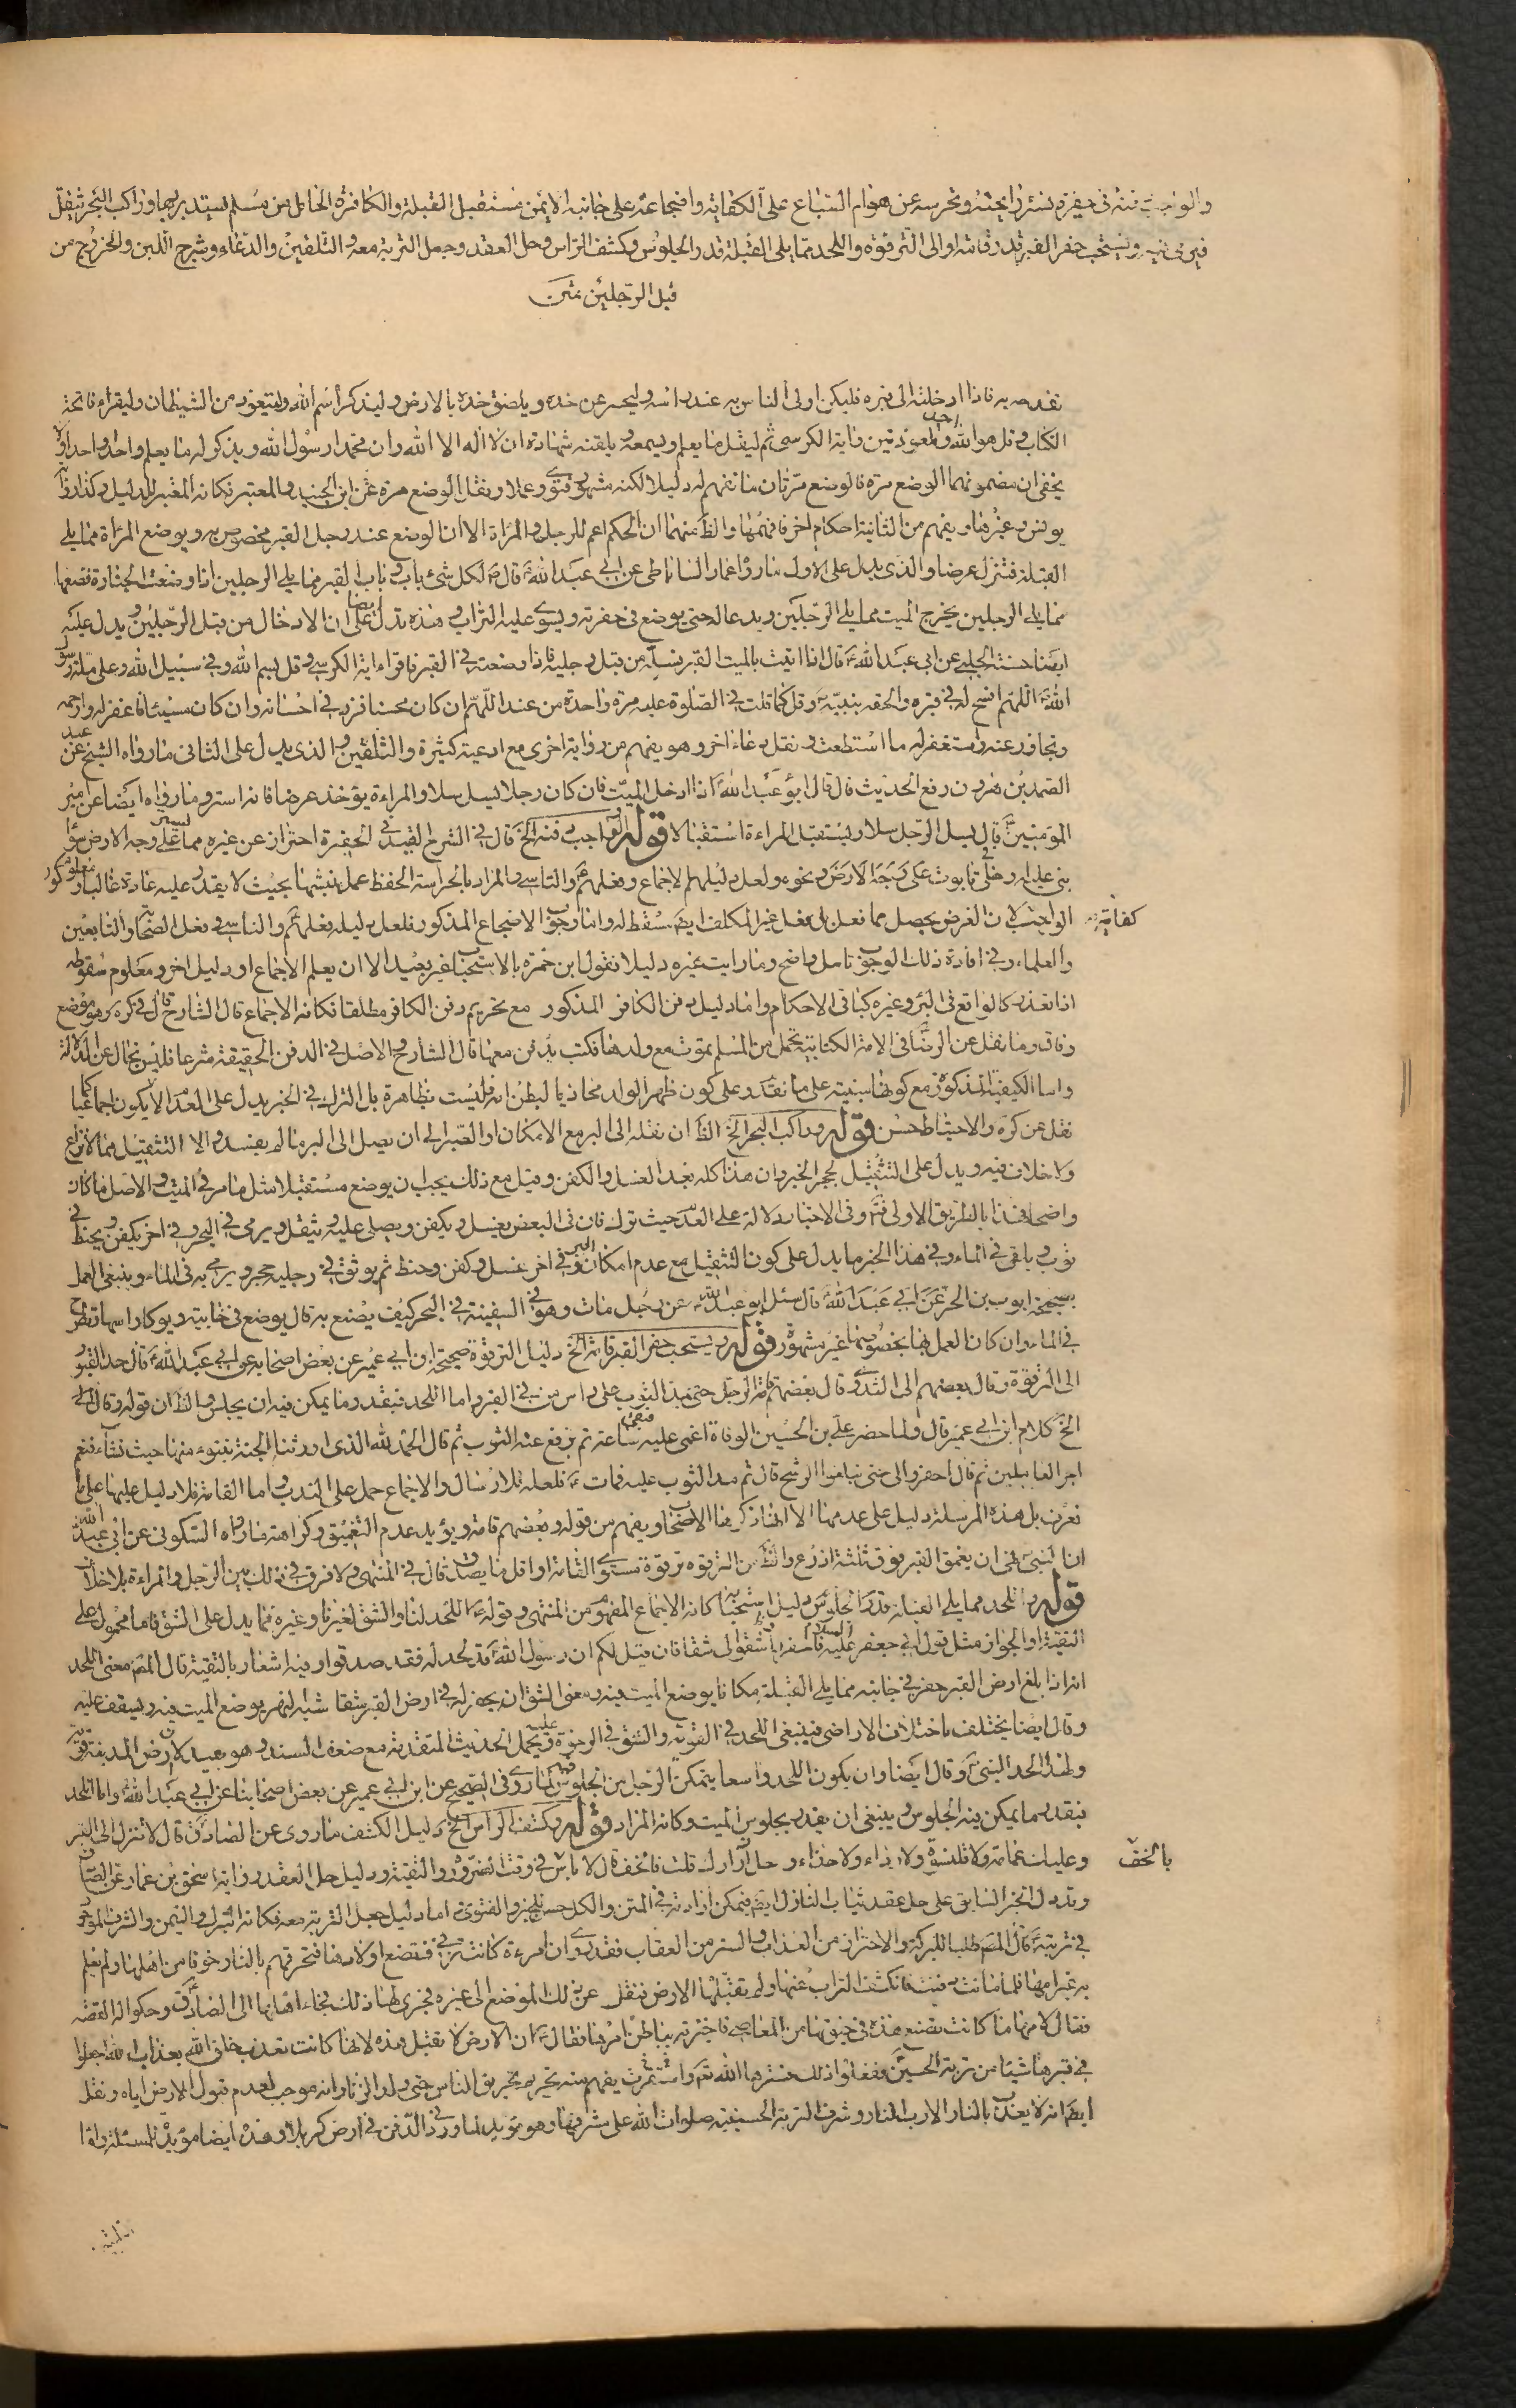 والواجب دفنه في حفيرة تستر رائحته وتحرسه عن هوام السباع على الكفاية واضجاعه على جانبه الايمن مستقبل القبلة والكافرة الحامل من مسلم يستدبر بها وراكب البحر يثقل
فيرمى فيه ويستحب حفر القبر قدر قامة او الى الترقوة واللحد مما يلى القبلة قدر الجلوس وكشف الراس وحل العقد وجعل التربة معه والتلقين والدعاء وشرج اللبن والخروج من
قبل الرجلين متن
به فاذا ادخلته الى قبره فليكن اولى الناس به عند راسه وليحسر عن خده ويلصق خده بالارض وليذكر اسم الله وليتعوذ من الشيطان وليقراء فاتحة
الكتاب وقل هو الله احد والمعوذتين واية الكرسي ثم ليقل ما يعلم ويسمعه تلقينه شهادة ان لا اله الا الله وان محمدا رسول الله ويذكر له ما يعلم واحدا واحدا ولا
يخفى ان مضمونهما الوضع مرة فالوضع مرتان ما نفهم له دليلا لكنه مشهور فتوى وعملا ونقل الوضع مرة عن ابن الجنيد والمعتبر فكانه المعتبر للدليل وكذا رواية
يونس وغيرها ويفهم من الثانية احكام اخر فافهمها والظ منهما ان الحكم اعم للرجل والمراة الا ان الوضع عند رجل القبر مخصوص به ويوضع المراة مما يلى
القبلة فتنزل عرضا والذى يدل على الاول ما رواه عمار الساباطى عن ابى عبد الله قال لكل شئ باب وباب القبر مما يلى الرجلين اذا وضعت الجنازة فضعها
مما يلى الرجلين يخرج الميت مما يلى الرجلين ويدعا له حتى يوضع فى حفرته ويسوى عليه التراب وهذه تدل ايضا على ان الادخال من قبل الرجلين ويدل عليه
ايضا حسنة الحلبى عن ابى عبد الله قال اذا اتيت بالميت القبر فسله من قبل رجليه فاذا وضعته فى القبر فاقراء اية الكرسى وقل بسم الله وفى سبيل الله وعلى ملة رسول
الله اللهم افسح له فى قبره والحقه بنبيه وقل كما قلت فى الصلوة عليه مرة واحدة من عند اللهم ان كان محسنا فزد فى احسانه وان كان مسيئا فاغفر له وارحمه
وتجاوز عنه واستغفر له ما استطعت ونقل دعاء اخر وهو يفهم من رواية اخرى مع ادعية كثيرة والتلقين والذى يدل على الثانى ما رواه الشيخ عن عبد
الصمد بن هرون رفع الحديث قال قال ابو عبد الله اذا ادخل الميت فان كان رجلا يسل سلا والمراءة يؤخذ عرضا فانه استر وما رواه ايضا عن امير
المؤمنين قال يسل الرجل سلا ويستقبل المراءة استقبالا قوله والواجب دفنه الخ قال فى الشرح القيد فى الحفيرة احتراز عن غيره مما يسمى على وجه الارض سواء
بنى عليه او جعل تابوت على وجه الارض ونحوه ولعل دليلهم الاجماع وفعلهم والتاسى والمراد بالحراسة الحفظ عمل نبشها بحيث لا يقدر عليه عادة غالبا وكون
كفاية الواجب لان الغرض يحصل مما فعل بل بفعل غير المكلف ايض سقط له واما وجوب الاضجاع المذكور فلعل دليله فعلهم والتاسى وفعل الصحابة والتابعين
والعلماء وفى افادة ذلك الوجوب تامل واضح وما رايت غيره دليلا فقول ابن حمزة بالاستحباب غير بعيد الا ان يعلم الاجماع او دليل اخر ومعلوم سقوطه
اذا تعذر كالواقع فى البئر وغيره كباقى الاحكام واما دليل دفن الكافر المذكور مع تحريم دفن الكافر مطلقا فكانه الاجماع قال الشارح قال فى كره وهو موضع
وفاق وما نقل عن الرضا فى الامة الكتابية تحمل من المسلم يموت مع ولدها فكتب يدفن معها قال الشارح والاصل فى الدفن الحقيقة شرعا فليس بخال عن الدلالة
واما الكيفية المذكورة مع كونها مبنية على ما تقدر على كون ظهر الولد محاذيا لبطن امه فليست بظاهرة بل الترك فى الخبر يدل على العدم الا يكون اجماعيا كما
نقل عن كره والاحتياط حسن قوله وراكب البحر الخ الظ ان نقله الى البر مع الامكان او الصبر الى ان يصل الى البر ما لم يفسد والا التثقيل مما لا نزاع
ولا خلاف فيه ويدل على التثقيل بحجر الخبر وان هذا كله بعد الغسل والكفن وقيل مع ذلك يجب ان يوضع مستقبلا مثل ما مر فى الميت والاصل ما كان
واضحا فهذا بالطريق الاولى وفى الاخبار دلالة على العدم حيث ترك فان فى البعض يغسل ويكفن ويصلى عليه ويثقل ويرمى فى البحر وفى اخر يكفن ويحنط فى
ثوب ويلقى فى الماء وفى هذا الخبر ما يدل على كون التثقيل مع عدم امكان البر وفى اخر غسل وكفن وحنط ثم يوثق فى رجليه حجر ويرمى به فى الماء وينبغى العمل
بصحيحة ايوب بن الحر عن ابى عبد الله قال سئل ابو عبد الله عن رجل مات وهو فى السفينة فى البحر كيف يصنع به قال يوضع فى خابية ويوكا راسها وتطرح
فى الماء وان كان العمل بها بخصوصها غير مشهور قوله ويستحب حفر القبر قامة الخ دليل الترقوة صحيحة ابن ابى عمير عن بعض اصحابه عن ابى عبد الله قال حد القبر
الى الترقوة وقال بعضهم الى الثدى وقال بعضهم قامة الرجل حتى يمد الثوب على راس من فى القبر واما اللحد فبقدر وما يمكن فيه ان يجلس والظ ان قوله وقال الى
الخ كلام ابن ابى عمير قال ولما حضر على بن الحسين الوفاة اغمى عليه فبقى ساعة ثم رفع عنه الثوب ثم قال الحمد لله الذى اورثنا الجنة نتبوء منها حيث نشاء فنعم
اجر العاملين ثم قال احفروا لى حتى تبلغوا الرشح قال ثم مد الثوب عليه فمات فلعله للارسال والاجماع حمل على الندب واما القامة فلا دليل عليها على ما
نعرف بل هذه المرسلة دليل على عدمها الا انها ذكرها الاصحاب ويفهم من قوله وبعضهم قامة ويؤيد عدم التعميق وكراهته ما رواه السكونى عن ابى عبد الله
ان النبى نهى ان يعمق القبر فوق ثلثة اذرع والظ من الترقوه ترقوة مستوى القامة او اقل ما يصدق قال فى المنتهى ولا فرق فى ذلك بين الرجل والمراءة بلا خلاف
قوله واللحد مما يلى القبلة قدر الجلوس دليل استحبابه كانه الاجماع المفهوم من المنتهى وقوله اللحد لنا والشق لغيرنا وغيره مما يدل على الشق فاما محمول على
التقية او الجواز مثل قول ابى جعفر عليه السلام فاحفروا شقوا لى شقا فان قيل لكم ان رسول الله قد لحد له فقد صدقوا وفيه اشعار بالتقية قال المص معنى اللحد
انه اذا بلغ ارض القبر حفر فى جانبه مما يلى القبلة مكانا يوضع الميت فيه ومعنى الشق ان يحفر له فى ارض القبر شقا شبه النهر يوضع الميت فيه ويسقف عليه
وقال ايضا يختلف باختلاف الاراضى فينبغى اللحد فى القوية والشق فى الرخوة ويحمل عليه الحديث المتقدمة مع ضعف السند وهو بعيد لان ارض المدينة قوية
ولهذا لحد النبى وقال ايضا وان يكون اللحد واسعا يتمكن الرجل من الجلوس فيه لما روى فى الصحيح عن ابن ابى عمير عن بعض اصحابنا عن ابى عبد الله واما اللحد
فبقدر ما يمكن فيه الجلوس وينبغى ان يقدر بجلوس الميت وكانه المراد قوله وكشف الراس الخ دليل الكشف ما روى عن الصادق قال لا تنزل الى القبر
وعليك عمامة ولا قلنسوة ولا رداء ولا حذاء وحل ازارك قلت فالخف قال لا باس بالخف فى وقت الضرورة والتقية ودليل حل العقد رواية اسحق بن عمار عن الصادق
ويدل الخبر السابق على حل عقد ثياب النازل ايض فيمكن ارادته فى المتن والكل حسن للخبر والفتوى اما دليل جعل التربة معه فكانه التبرك والتيمن والشرف الموجود
فى تربته قال المص طلبا للبركة والاحتراز من العذاب والستر من العقاب فقد روى ان امرءة كانت تزنى فتضع اولادها فتحرقهم بالنار خوفا من اهلها ولم يعلم
به غير امها فلما ماتت دفنت فانكشف التراب عنها ولم تقبلها الارض فنقل عن ذلك الموضع الى غيره فجرى لها ذلك فجاء اهلها الى الصادق وحكوا له القصة
فقال لامها ما كانت تصنع هذه فى حيوتها من المعاصى فاخبرته بباطن امرها فقال ان الارض لا تقبل هذه لانها كانت تعذب خلق الله بعذاب الله اجعلوا
فى قبرها شيئا من تربة الحسين ففعلوا ذلك فسترها الله تع واستمرت يفهم منه تحريم تحريق الناس حتى ولد الزنا وانه موجب لعدم قبول الارض اياه ونقل
ايض انه لا يعذب بالنار الا رب النار وشرف التربة الحسينية صلوات الله على مشرفها وهو مؤيد لما ورد فى الدفن فى ارض كربلا وهذه ايضا مؤيد للمسئلة واما